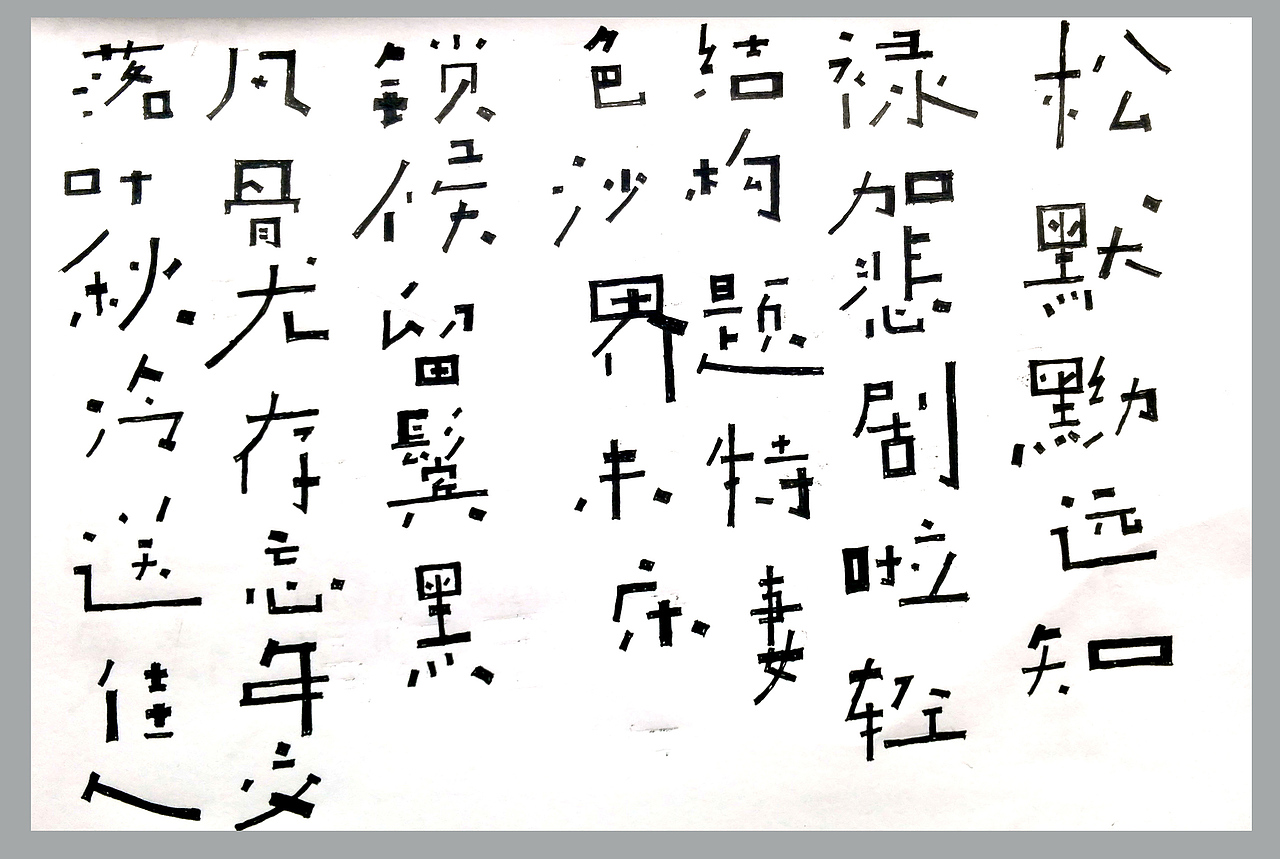 松默黝远知
禄加悲剧啦轻
结构题特妻
色沙界未床
锁候留鬓黑
风骨尤存忘年交
落叶秋冷送佳人